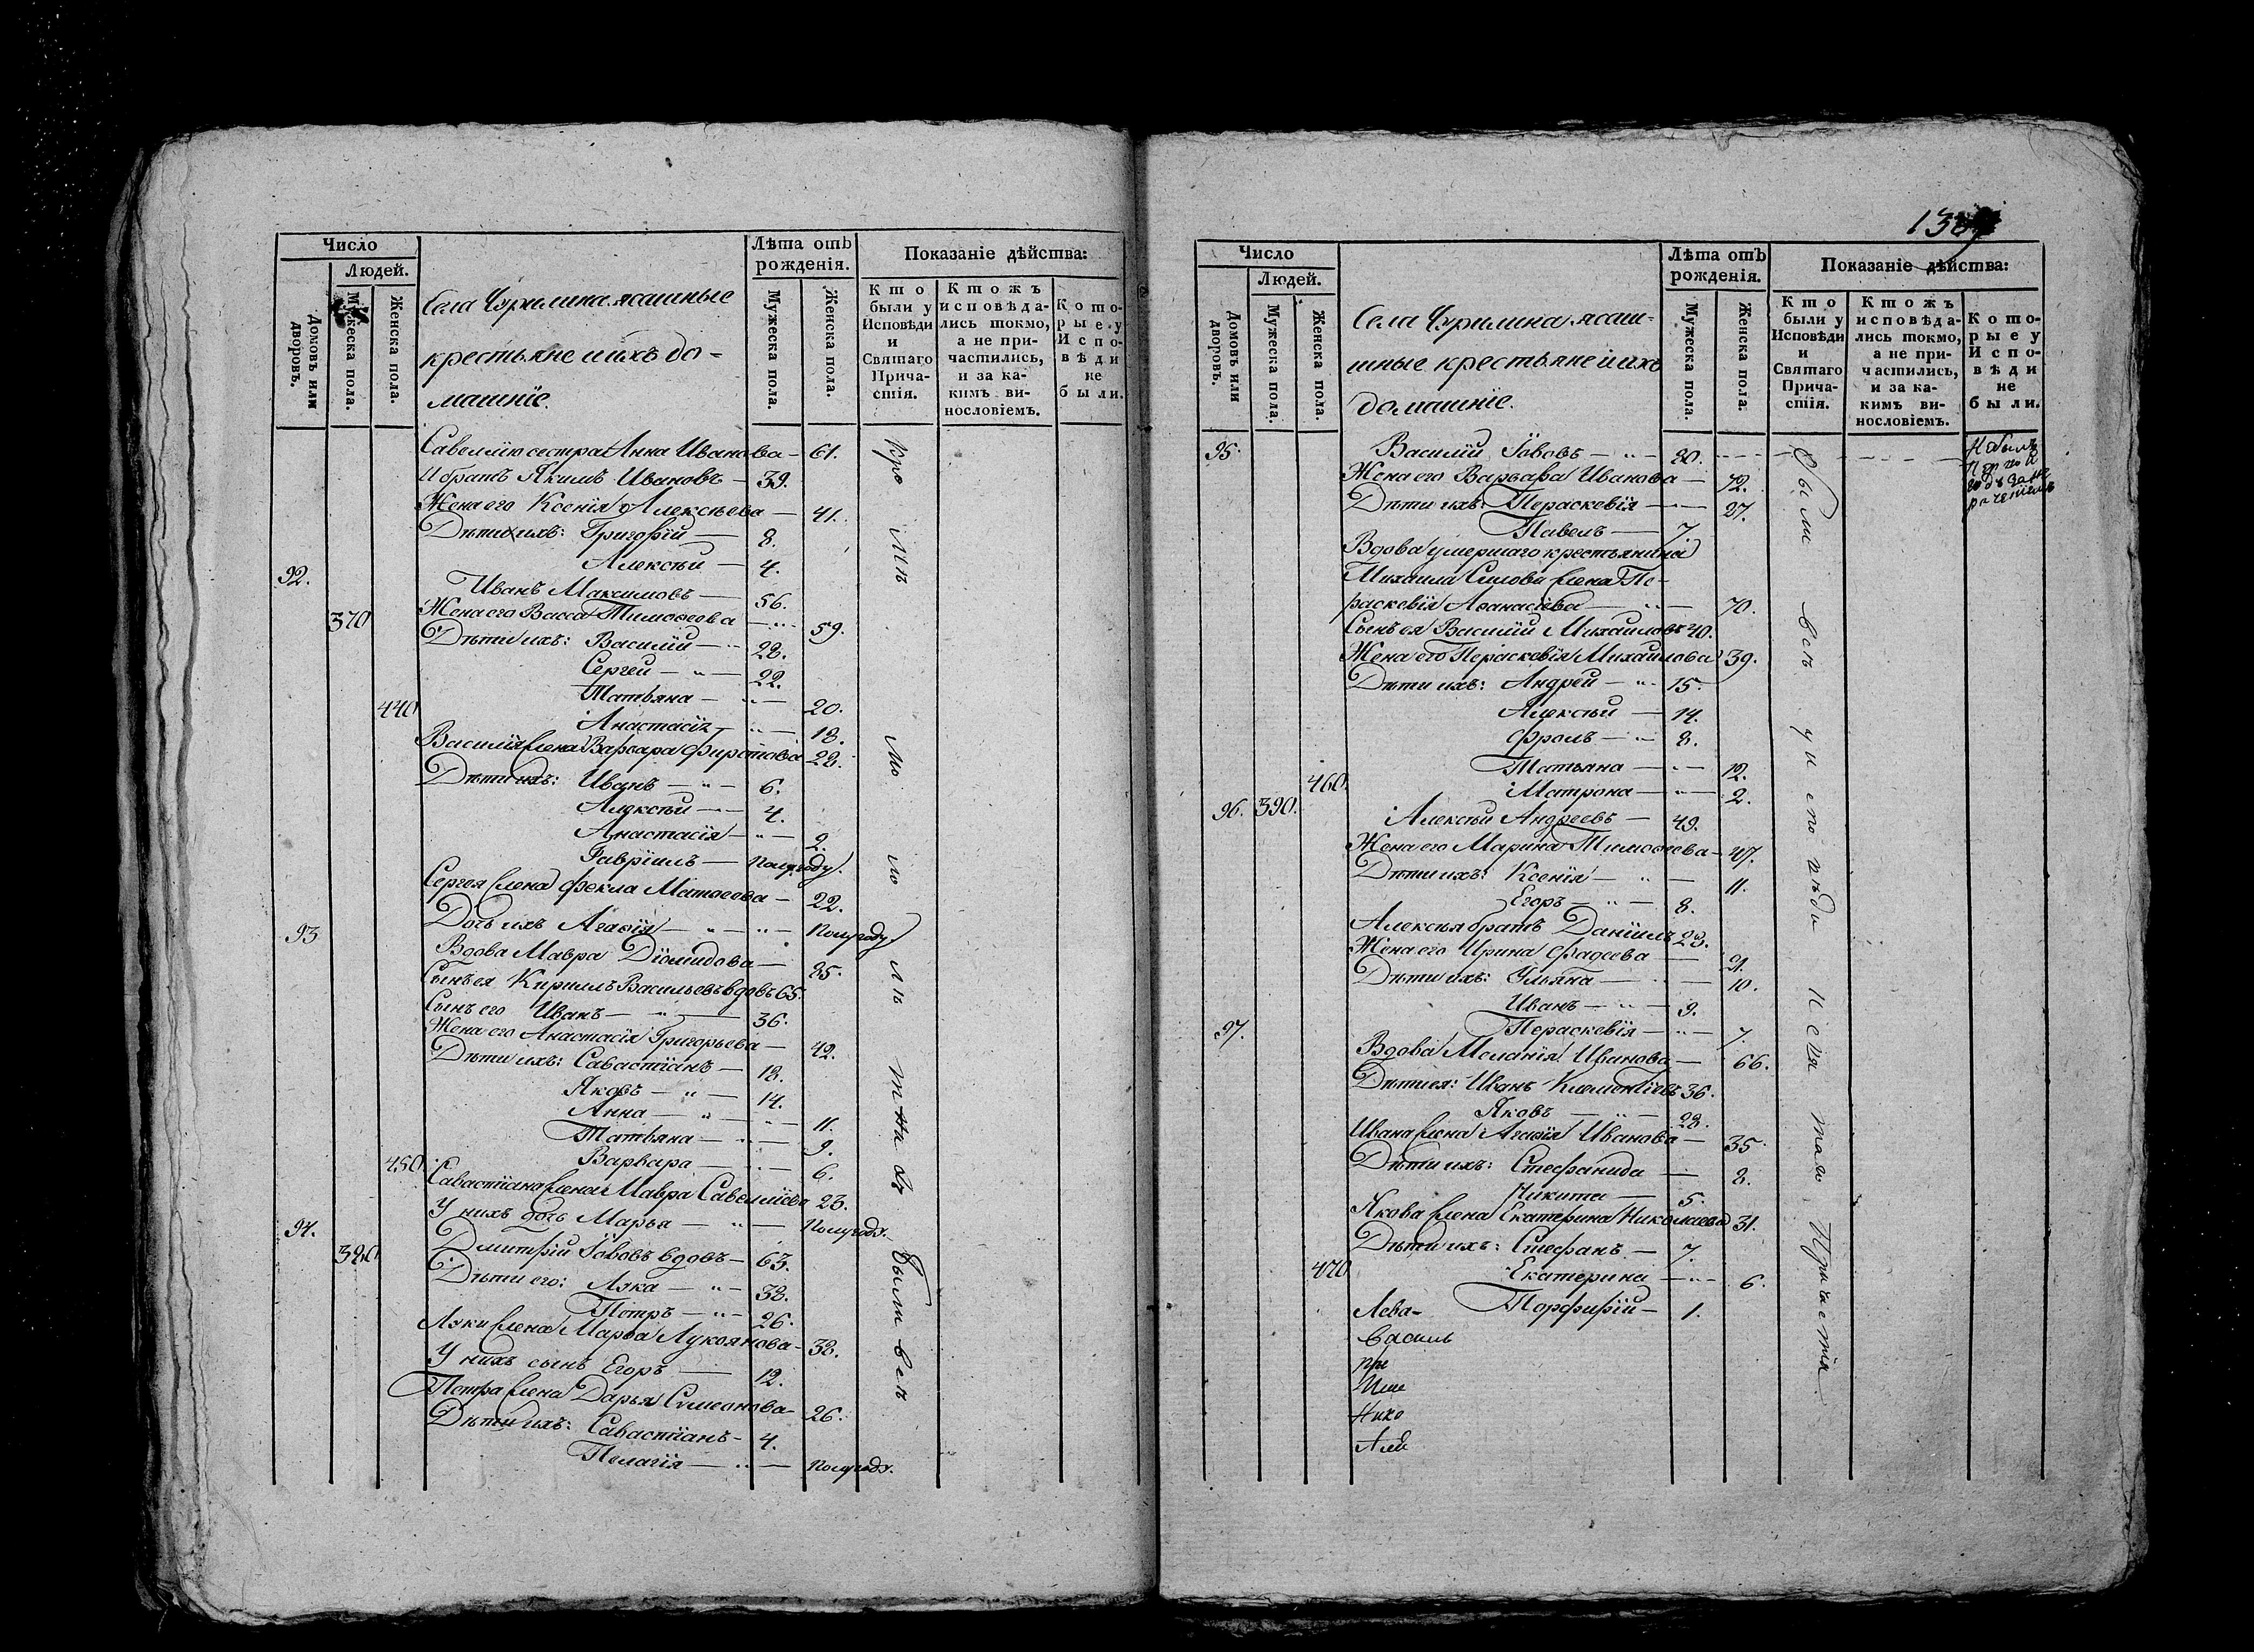 Число
Людей.
Домовъ или дворовъ.
Мужеска пола.
Женска пола.
Села Чурилина ясашные
крестьяне и ихъ до-
машніе.
Лѣта отъ рожденія.
Мужеска пола.
Женска пола.
Показаніе дѣйства:
Кто были у Исповѣди и Святаго Причастія.
Ктожъ исповѣдались токмо, а не причастились, и за какимъ винословіемъ.
Которые у Исповѣди не были.
Савеллію сестра Анна Иванова - 61.
И братъ Якимъ Ивановъ - 39.
Жена его Ксенія Алексѣева - 41.
Дѣти ихъ: Григорій - 8.
Алексѣй - 4.
92. Иванъ Максимовъ - 56.
370 Жена его Васса Тимофеева - 59.
Дѣти ихъ: Василій - 28.
Сергей - 22.
Татьяна - 20.
440 Анастасія - 18.
Василія жена Варвара Фирстова 28.
Дѣти ихъ: Иванъ - 6.
Алексѣй - 4.
Анастасія - 2.
Гавріилъ - полугоду.
Сергея жена Фекла Матвеева - 22.
Дочь ихъ Агафія - полугоду
93 Вдова Мавра Діомидова - 85.
Сынъ ея Кириллъ Васильевъ вдовъ 65.
Сынъ его Иванъ - 36.
Жена его Анастасія Григорьева - 42.
Дѣти ихъ: Савастіанъ - 18.
Яковъ - 14.
Анна - 11.
Татьяна - 9.
450. Варвара - 6.
Савастіана жена Мавра Савелліева 23.
У нихъ дочь Марья - полугоду.
94. Дмитрій Іововъ вдовъ - 63.
380 Дѣти его: Лука - 38.
Петръ - 26.
Луки жена Марья Лукоянова - 38.
У нихъ сынъ Егоръ - 12.
Петра жена Дарья Симеонова - 26.
Дѣти ихъ: Савастіанъ - 4.
Пелагія - полугоду.
были всѣ
Число
Людей.
Домовъ или дворовъ.
Мужеска пола.
Женска пола.
Села Чурилина ясаш-
шные крестьяне и ихъ
домашніе.
Лѣта отъ рожденія.
Мужеска пола.
Женска пола.
Показаніе дѣйства:
Кто были у Исповѣди и Святаго Причастія.
Ктожъ исповѣдались токмо, а не причастились, и за какимъ винословіемъ.
Которые у Исповѣди не были.
95. Василій Іововъ - 80.
Жена его Варвара Иванова - 72.
Дѣти ихъ: Пераскевія - 27.
Павелъ - 7.
Вдова умершаго крестьянина
Михаила Силова жена Пе-
раскевія Афанасіева - 70.
Сынъ ея Василій Михаиловъ 40.
Жена его Пераскевія Михаилова 39.
Дѣти ихъ: Андрей - 15.
Алексѣй - 14.
Фролъ - 8.
Татьяна - 12.
460 Матрона - 2.
96. 390. Алексѣй Андреевъ - 49.
Жена его Марина Тимофеева - 47.
Дѣти ихъ: Ксенія - 11.
Егоръ - 8.
Алексѣя братъ Даніилъ 23.
Жена его Ирина Фадеева - 31.
Дѣти ихъ: Ульяна - 10.
Иванъ - 9.
Пераскевія - 7.
97. Вдова Меланія Иванова - 66.
Дѣти ея: Иванъ Климентіевъ 36.
Яковъ - 28.
Ивана жена Агафія Иванова - 35.
Дѣти ихъ: Стефанида - 8.
Никита - 5.
Якова жена Екатерина Николаева 31.
Дѣти ихъ: Стефанъ - 7.
470 Екатерина - 6.
Порфирій - 1.
были всѣ у исповѣди и святаго Причастія.